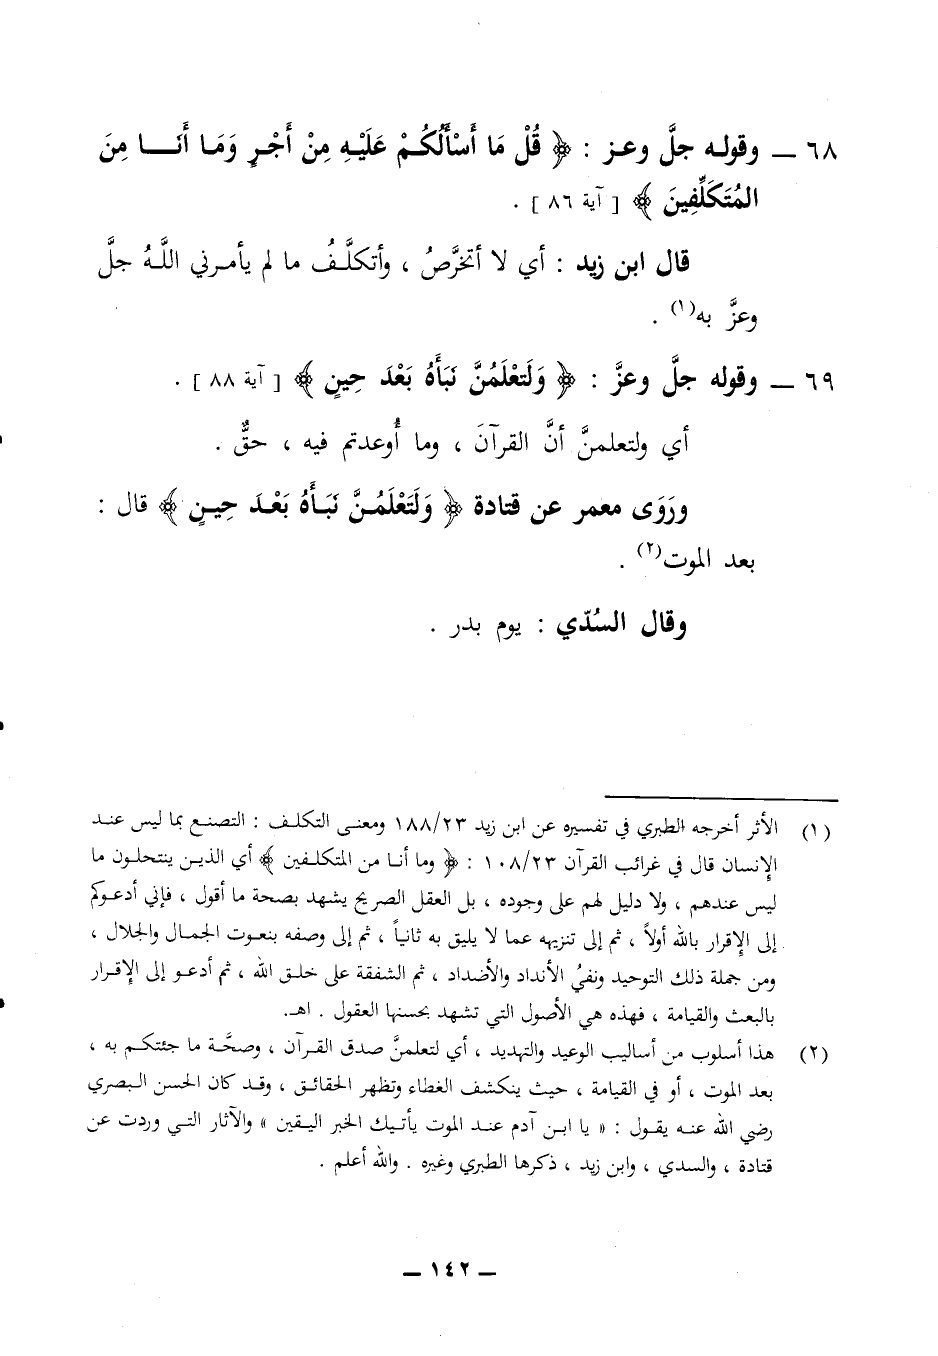 ٦٨ ــ وقوله جلَّ وعز : ﴿ قُلْ مَا أَسْأَلُكُمْ عَلَيْهِ مِنْ أَجْرٍ وَمَا أَنَا مِنَ
المُتَكَلِّفِينَ ﴾ [ آية ٨٦ ] .
قال ابن زيد : أي لا أتخرَّصُ ، وأتكلَّفُ ما لم يأمرني اللَّهُ جلَّ
وعزَّ به(١) .
٦٩ ــ وقوله جلَّ وعزَّ : ﴿ وَلَتَعْلَمُنَّ نَبَأَهُ بَعْدَ حِينٍ ﴾ [ آية ٨٨ ] .
أي ولتعلمنَّ أنَّ القرآنَ ، وما أُوعدتم فيه ، حقٌّ .
ورَوَى معمر عن قتادة ﴿ وَلَتَعْلَمُنَّ نَبَأَهُ بَعْدَ حِينٍ ﴾ قال :
بعد الموت(٢) .
وقال السُدّي : يوم بدر .
(١) الأثر أخرجه الطبري في تفسيره عن ابن زيد ١٨٨/٢٣ ومعنى التكلف : التصنع بما ليس عند
الإنسان قال في غرائب القرآن ١٠٨/٢٣ : ﴿ وما أنا من المتكلفين ﴾ أي الذين ينتحلون ما
ليس عندهم ، ولا دليل لهم على وجوده ، بل العقل الصريح يشهد بصحة ما أقول ، فإني أدعوكم
إلى الإقرار بالله أولاً ، ثم إلى تنزيهه عما لا يليق به ثانياً ، ثم إلى وصفه بنعوت الجمال والجلال ،
ومن جملة ذلك التوحيد ونفيُ الأنداد والأضداد ، ثم الشفقة على خلق الله ، ثم أدعو إلى الإقرار
بالبعث والقيامة ، فهذه هي الأصول التي تشهد بحسنها العقول . اهـ.
(٢) هذا أسلوب من أساليب الوعيد والتهديد ، أي لتعلمنَّ صدق القرآن ، وصحَّة ما جئتكم به ،
بعد الموت ، أو في القيامة ، حيث ينكشف الغطاء وتظهر الحقائق ، وقد كان الحسن البصري
رضي الله عنه يقول : « يا ابن آدم عند الموت يأتيك الخبر اليقين » والآثار التي وردت عن
قتادة ، والسدي ، وابن زيد ، ذكرها الطبري وغيره . والله أعلم .
ــ ١٤٢ ــ